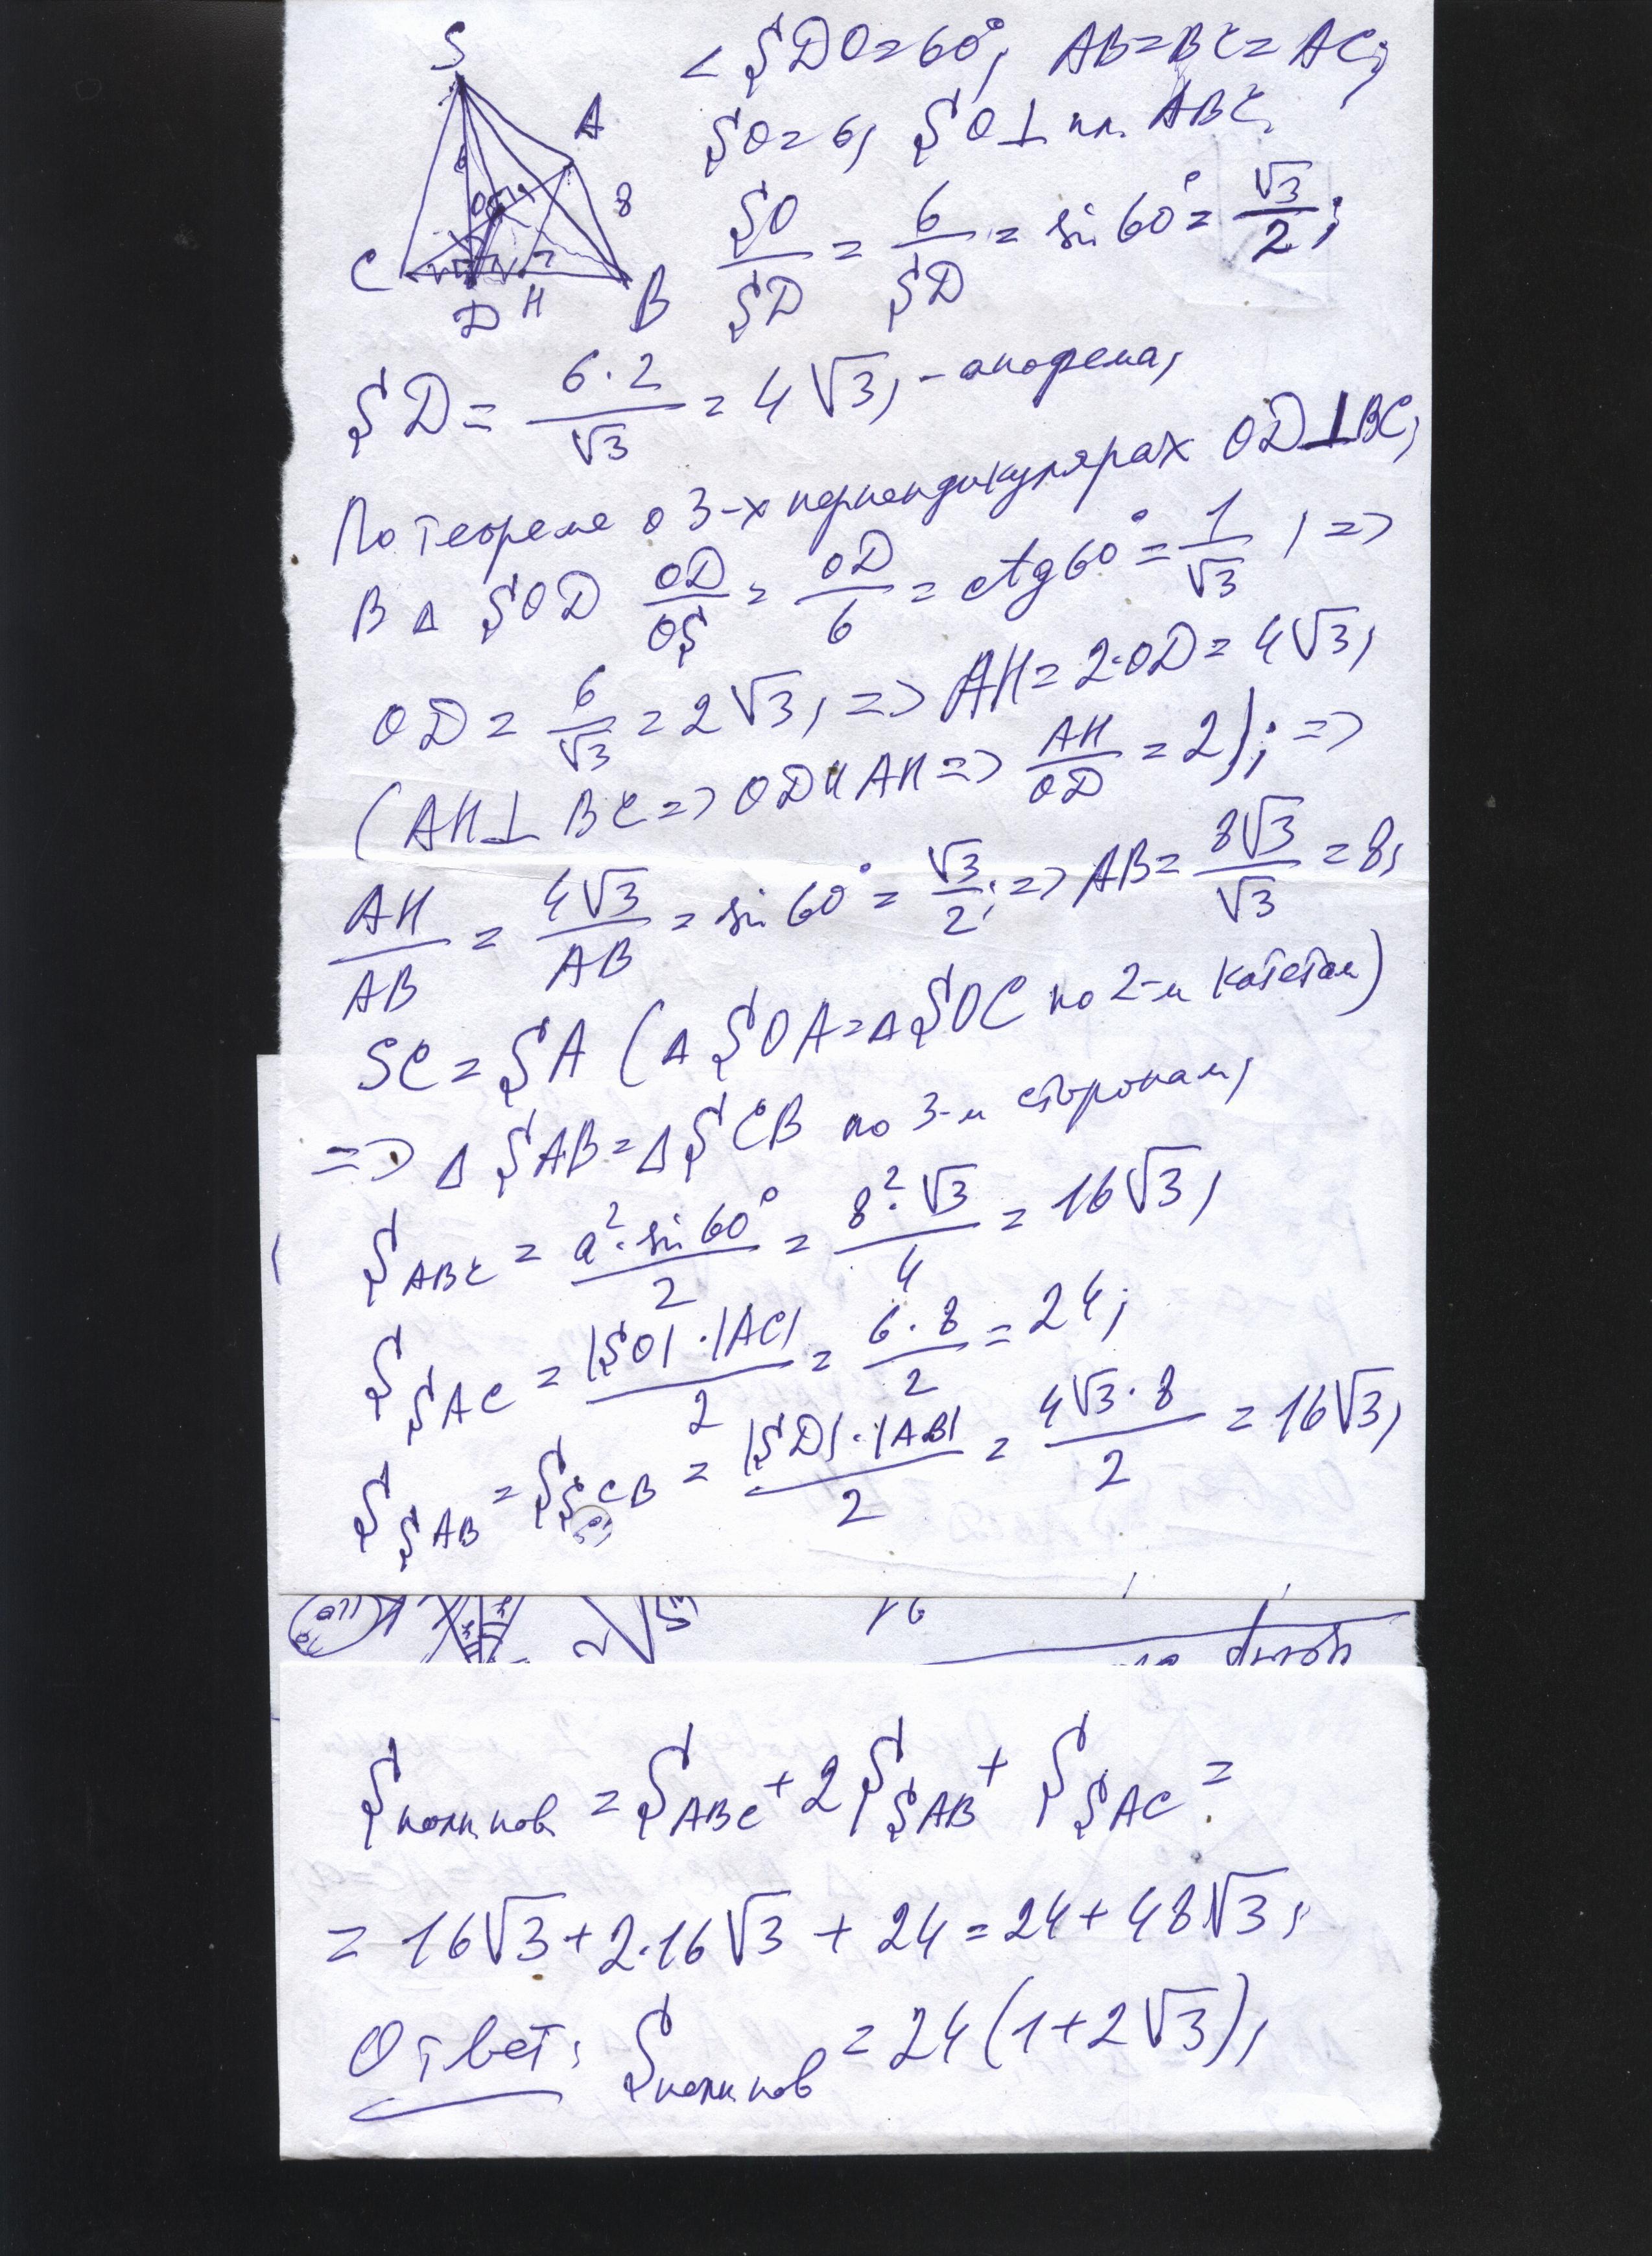 S
A
6
O
8
C
D
H
B
< SDO=60°, AB=BC=AC;
SO=6, SO⊥ пл. ABC,
SO/SD = 6/SD = sin 60° = √3/2;
SD = 6·2/√3 = 4√3, - апофема,
По теореме о 3-х перпендикулярах OD⊥BC,
В Δ SOD OD/OS = OD/6 = ctg60° = 1/√3, =>
OD = 6/√3 = 2√3, => AH = 2·OD = 4√3,
(AH⊥BC => OD∥AH => AH/OD = 2); =>
AH/AB = 4√3/AB = sin 60° = √3/2; => AB = 8√3/√3 = 8,
SC = SA (Δ SOA = Δ SOC по 2-м катетам)
=> Δ SAB = Δ SCB по 3-м сторонам,
S ABC = a²·sin 60°/2 = 8²·√3/4 = 16√3,
S SAC = |SO|·|AC|/2 = 6·8/2 = 24;
S SAB = S SCB = |SD|·|AB|/2 = 4√3·8/2 = 16√3,
S полн. пов. = S ABC + 2 S SAB + S SAC =
= 16√3 + 2·16√3 + 24 = 24 + 48√3,
Ответ: S полн. пов = 24(1+2√3),